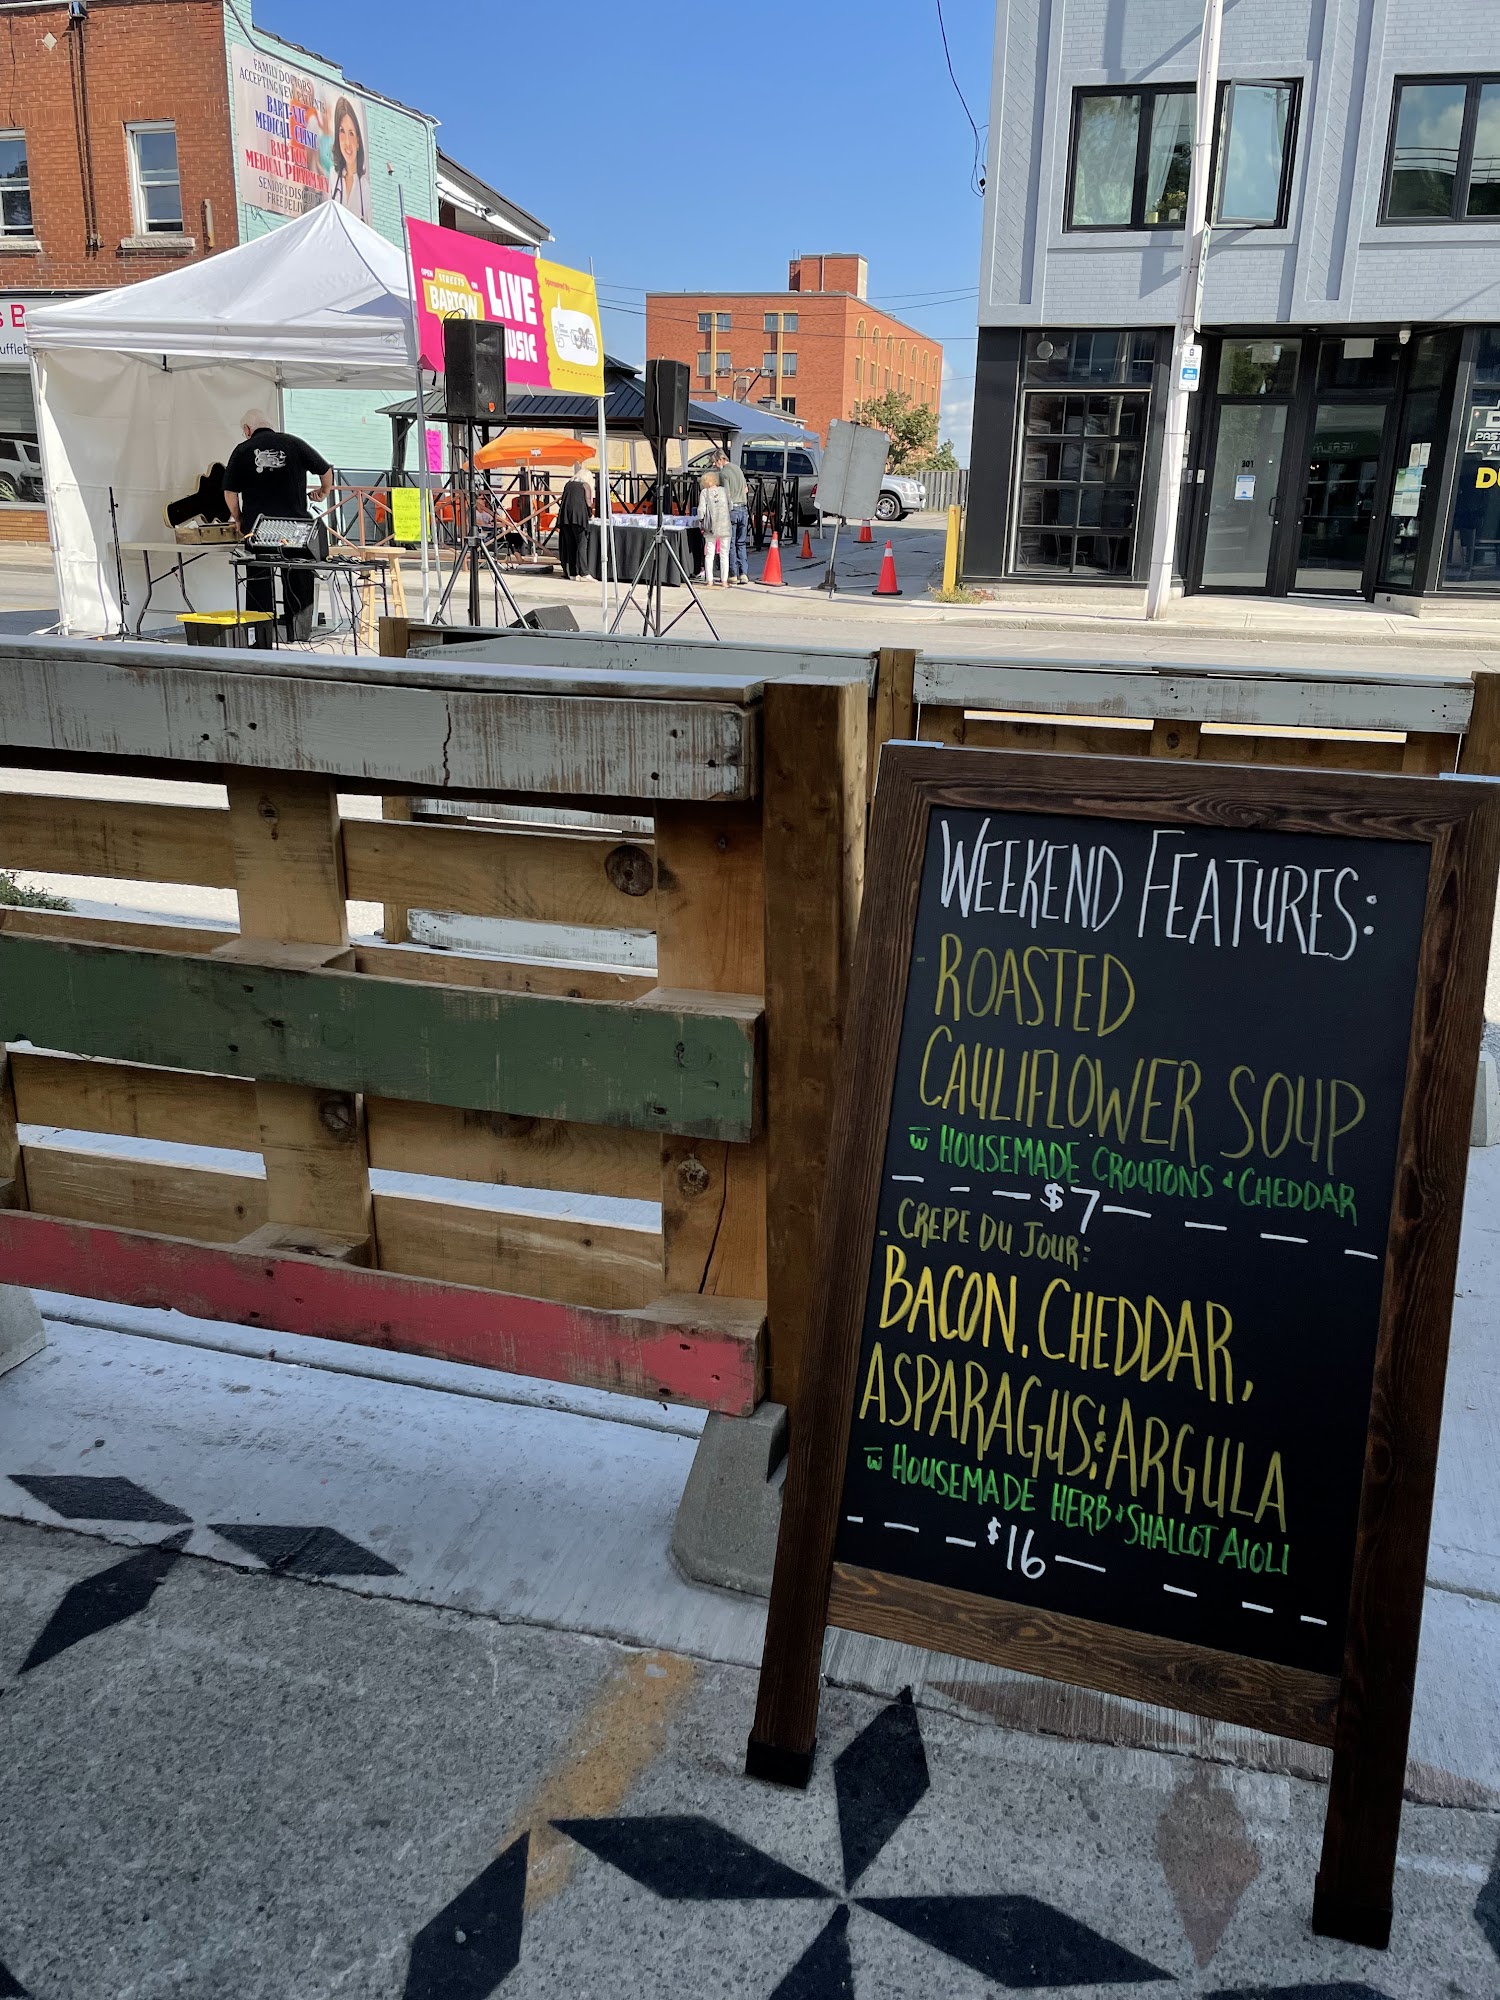 FAMILY DOCTORS
ACCEPTING NEW PATIENTS
BART-VIC
MEDICAL CLINIC
BARTON
MEDICAL PHARMACY
OPEN STREETS ON
BARTON
LIVE
MUSIC
Sponsored by
301
WEEKEND FEATURES:
- ROASTED
CAULIFLOWER SOUP
w HOUSEMADE CROUTONS & CHEDDAR
$7
- CREPE DU JOUR:
BACON, CHEDDAR,
ASPARAGUS & ARGULA
w HOUSEMADE HERB & SHALLOT AIOLI
$16